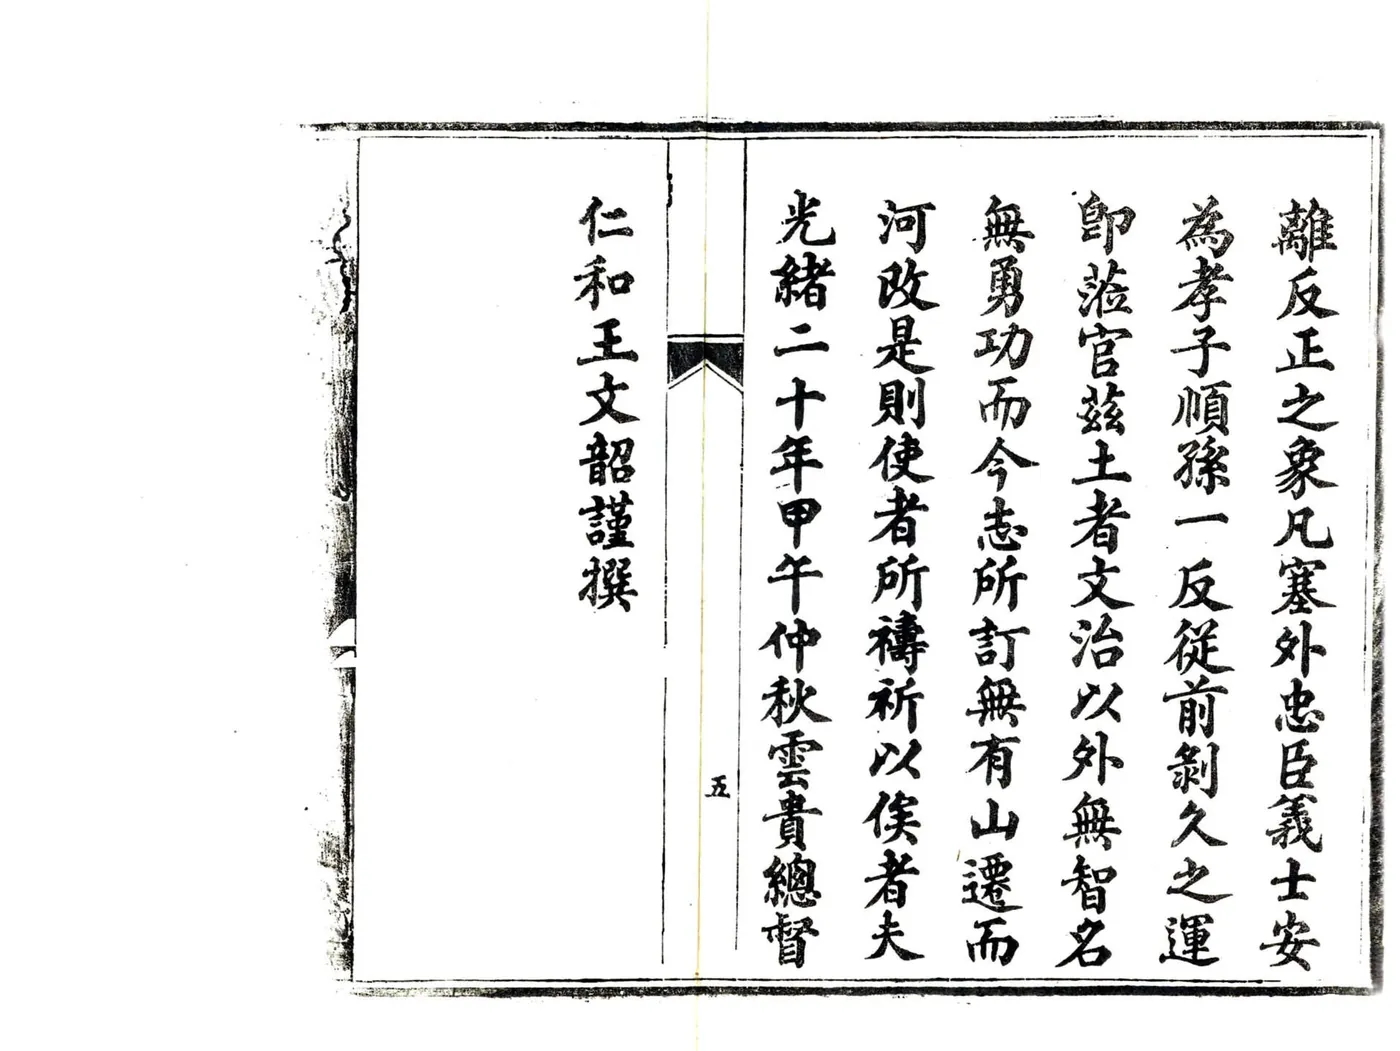 離反正之象凡塞外忠臣義士安
為孝子順孫一反從前剝久之運
即蒞官茲土者文治以外無智名
無勇功而今志所訂無有山遷而
河改是則使者所禱祈以俟者夫
光緒二十年甲午仲秋雲貴總督
五
仁和王文韶謹撰